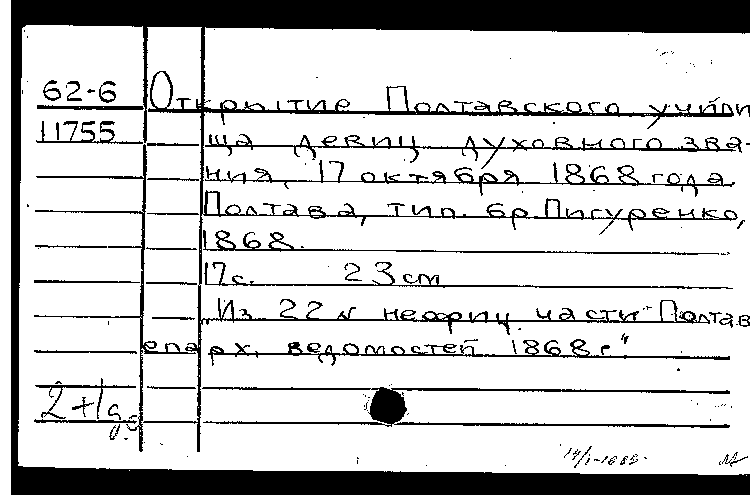 62-6 Открытие Полтавского учили
11755 ща девиц духовного зва-
ния, 17 октября 1868 года.
Полтава, тип. бр. Пигуренко,
1868.
17с. 23 cm
"Из 22 № неофиц. части "Полтав
епарх. ведомостей 1868 г."